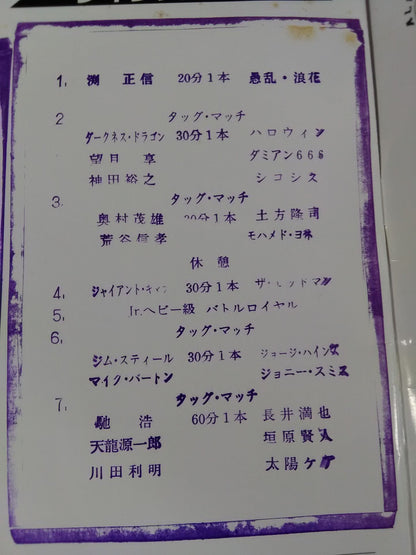 1. 渕 正信 20分1本 愚乱・浪花
2 タッグ・マッチ
ダークネス・ドラゴン 30分1本 ハロウィン
望月 享 ダミアン666
神田裕之 シコシス
3. タッグ・マッチ
奥村茂雄 20分1本 土方隆司
荒谷信孝 モハメド・ヨネ
休憩
4. ジャイアント・キマラ 30分1本
5. Jr.ヘビー級 バトルロイヤル
6. タッグ・マッチ
ジム・スティール 30分1本 ジョージ・ハインズ
マイク・バートン ジョニー・スミス
7. タッグ・マッチ
馳 浩 60分1本 長井満也
天龍源一郎 垣原賢人
川田利明 太陽ケア